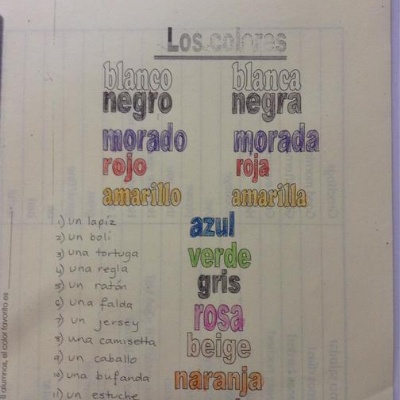 Los colores
blanco blanca
negro negra
morado morada
rojo roja
amarillo amarilla
azul
verde
gris
rosa
beige
naranja
1) un lapiz
2) un boli
3) una tortuga
4) una regla
5) un ratón
6) una falda
7) un jersey
8) una camisetta
9) un caballo
10) una bufanda
11) un estuche
alumnos, el color favorito es